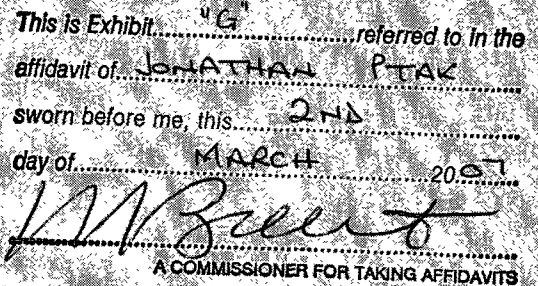 This is Exhibit "G" referred to in the
affidavit of JONATHAN PTAK
sworn before me, this 2ND
day of MARCH 2007
A COMMISSIONER FOR TAKING AFFIDAVITS